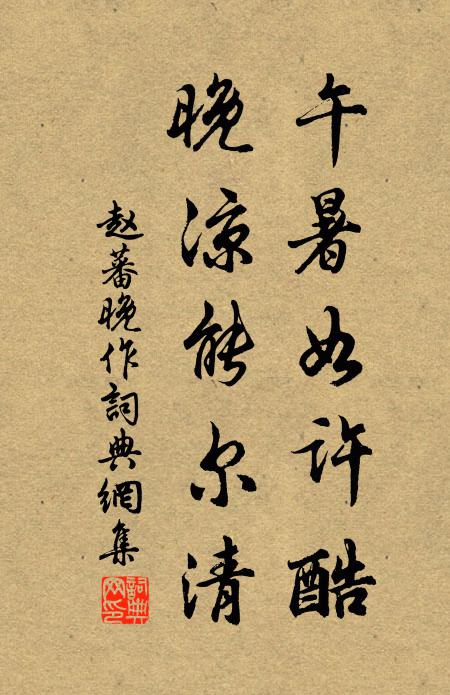 午暑如许酷
晚凉能尔清
赵蕃晚作词典網集
詞典网印